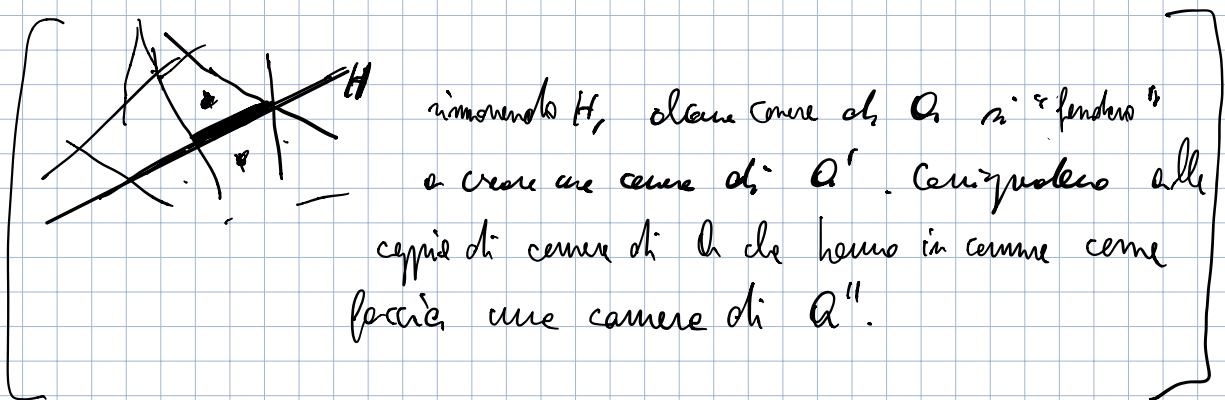 H rimovendo H, alcune camere di Q si "fondono"
a creare una camera di Q'. Corrispondono alle
coppie di camere di Q che hanno in comune come
faccia una camera di Q".